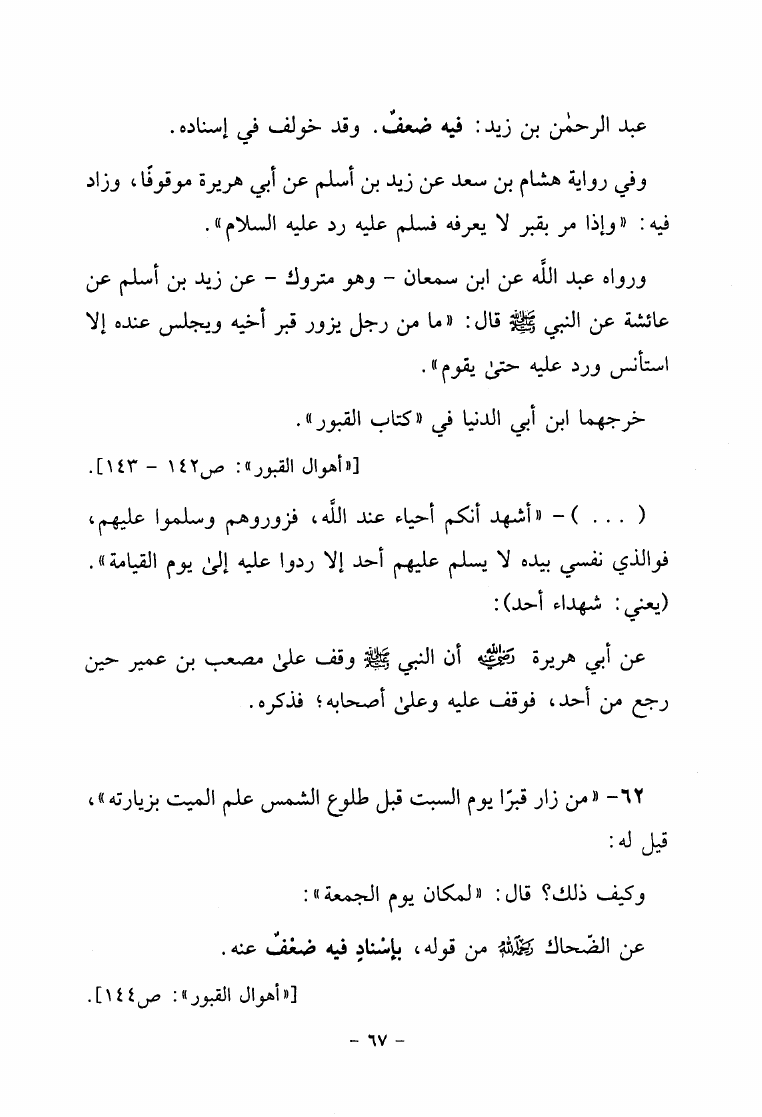 عبد الرحمٰن بن زيد: فيه ضعفٌ. وقد خولف في إسناده.
وفي رواية هشام بن سعد عن زيد بن أسلم عن أبي هريرة موقوفًا، وزاد
فيه: «وإذا مر بقبر لا يعرفه فسلم عليه رد عليه السلام».
ورواه عبد اللَّه عن ابن سمعان - وهو متروك - عن زيد بن أسلم عن
عائشة عن النبي ﷺ قال: «ما من رجل يزور قبر أخيه ويجلس عنده إلا
استأنس ورد عليه حتىٰ يقوم».
خرجهما ابن أبي الدنيا في «كتاب القبور».
[«أهوال القبور»: ص١٤٢ - ١٤٣].
( . . . ) - «أشهد أنكم أحياء عند اللَّه، فزوروهم وسلموا عليهم،
فوالذي نفسي بيده لا يسلم عليهم أحد إلا ردوا عليه إلىٰ يوم القيامة».
(يعني: شهداء أحد):
عن أبي هريرة رَضِيَ اللهُ عَنْهُ أن النبي ﷺ وقف علىٰ مصعب بن عمير حين
رجع من أحد، فوقف عليه وعلىٰ أصحابه؛ فذكره.
٦٢- «من زار قبرًا يوم السبت قبل طلوع الشمس علم الميت بزيارته»،
قيل له:
وكيف ذلك؟ قال: «لمكان يوم الجمعة»:
عن الضّحاك رَحِمَهُ اللهُ من قوله، بإسْنادٍ فيه ضَعْفٌ عنه.
[«أهوال القبور»: ص١٤٤].
- ٦٧ -